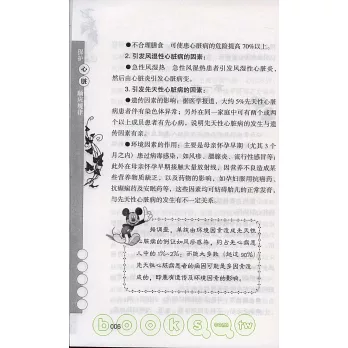 ●不合理膳食 可使患心脏病的危险提高70%以上。
2. 引发风湿性心脏病的因素：
●急性风湿热 急性风湿热患者引发风湿性心脏炎，
然后由心脏炎引发心脏病变。
3. 引发先天性心脏病的因素：
●遗传因素的影响：据医学报道，大约5%先天性心脏
病患者伴有染色体异常；另外在同一家庭中可有两个或两
个以上成员患者有先心病，说明先天性心脏病的发生与遗
传因素有亲。
●环境因素的作用：主要是母亲怀孕早期（尤其3个
月之内）患过病毒感染，如风疹、腮腺炎、流行性感冒等；
此外在母亲怀孕早期接触大量放射线，因营养不良造成某
些营养物质缺乏，以及药物的影响，如孕妇服用抗癌药、
抗癫痫药及安眠药等，这些因素均可妨碍胎儿的正常发育，
与先天性心脏病的发生有不一定关系。
据调查，单纯由环境因素造成先天性
心脏病的例证如风疹感染，约占先心病病
人中的1%~2%；而绝大多数（超过90%）
先天性心脏病患者的病因可能是多因素造
成的，即兼有遗传及环境因素的影响。
保护
心
脏
006
books.com.tw